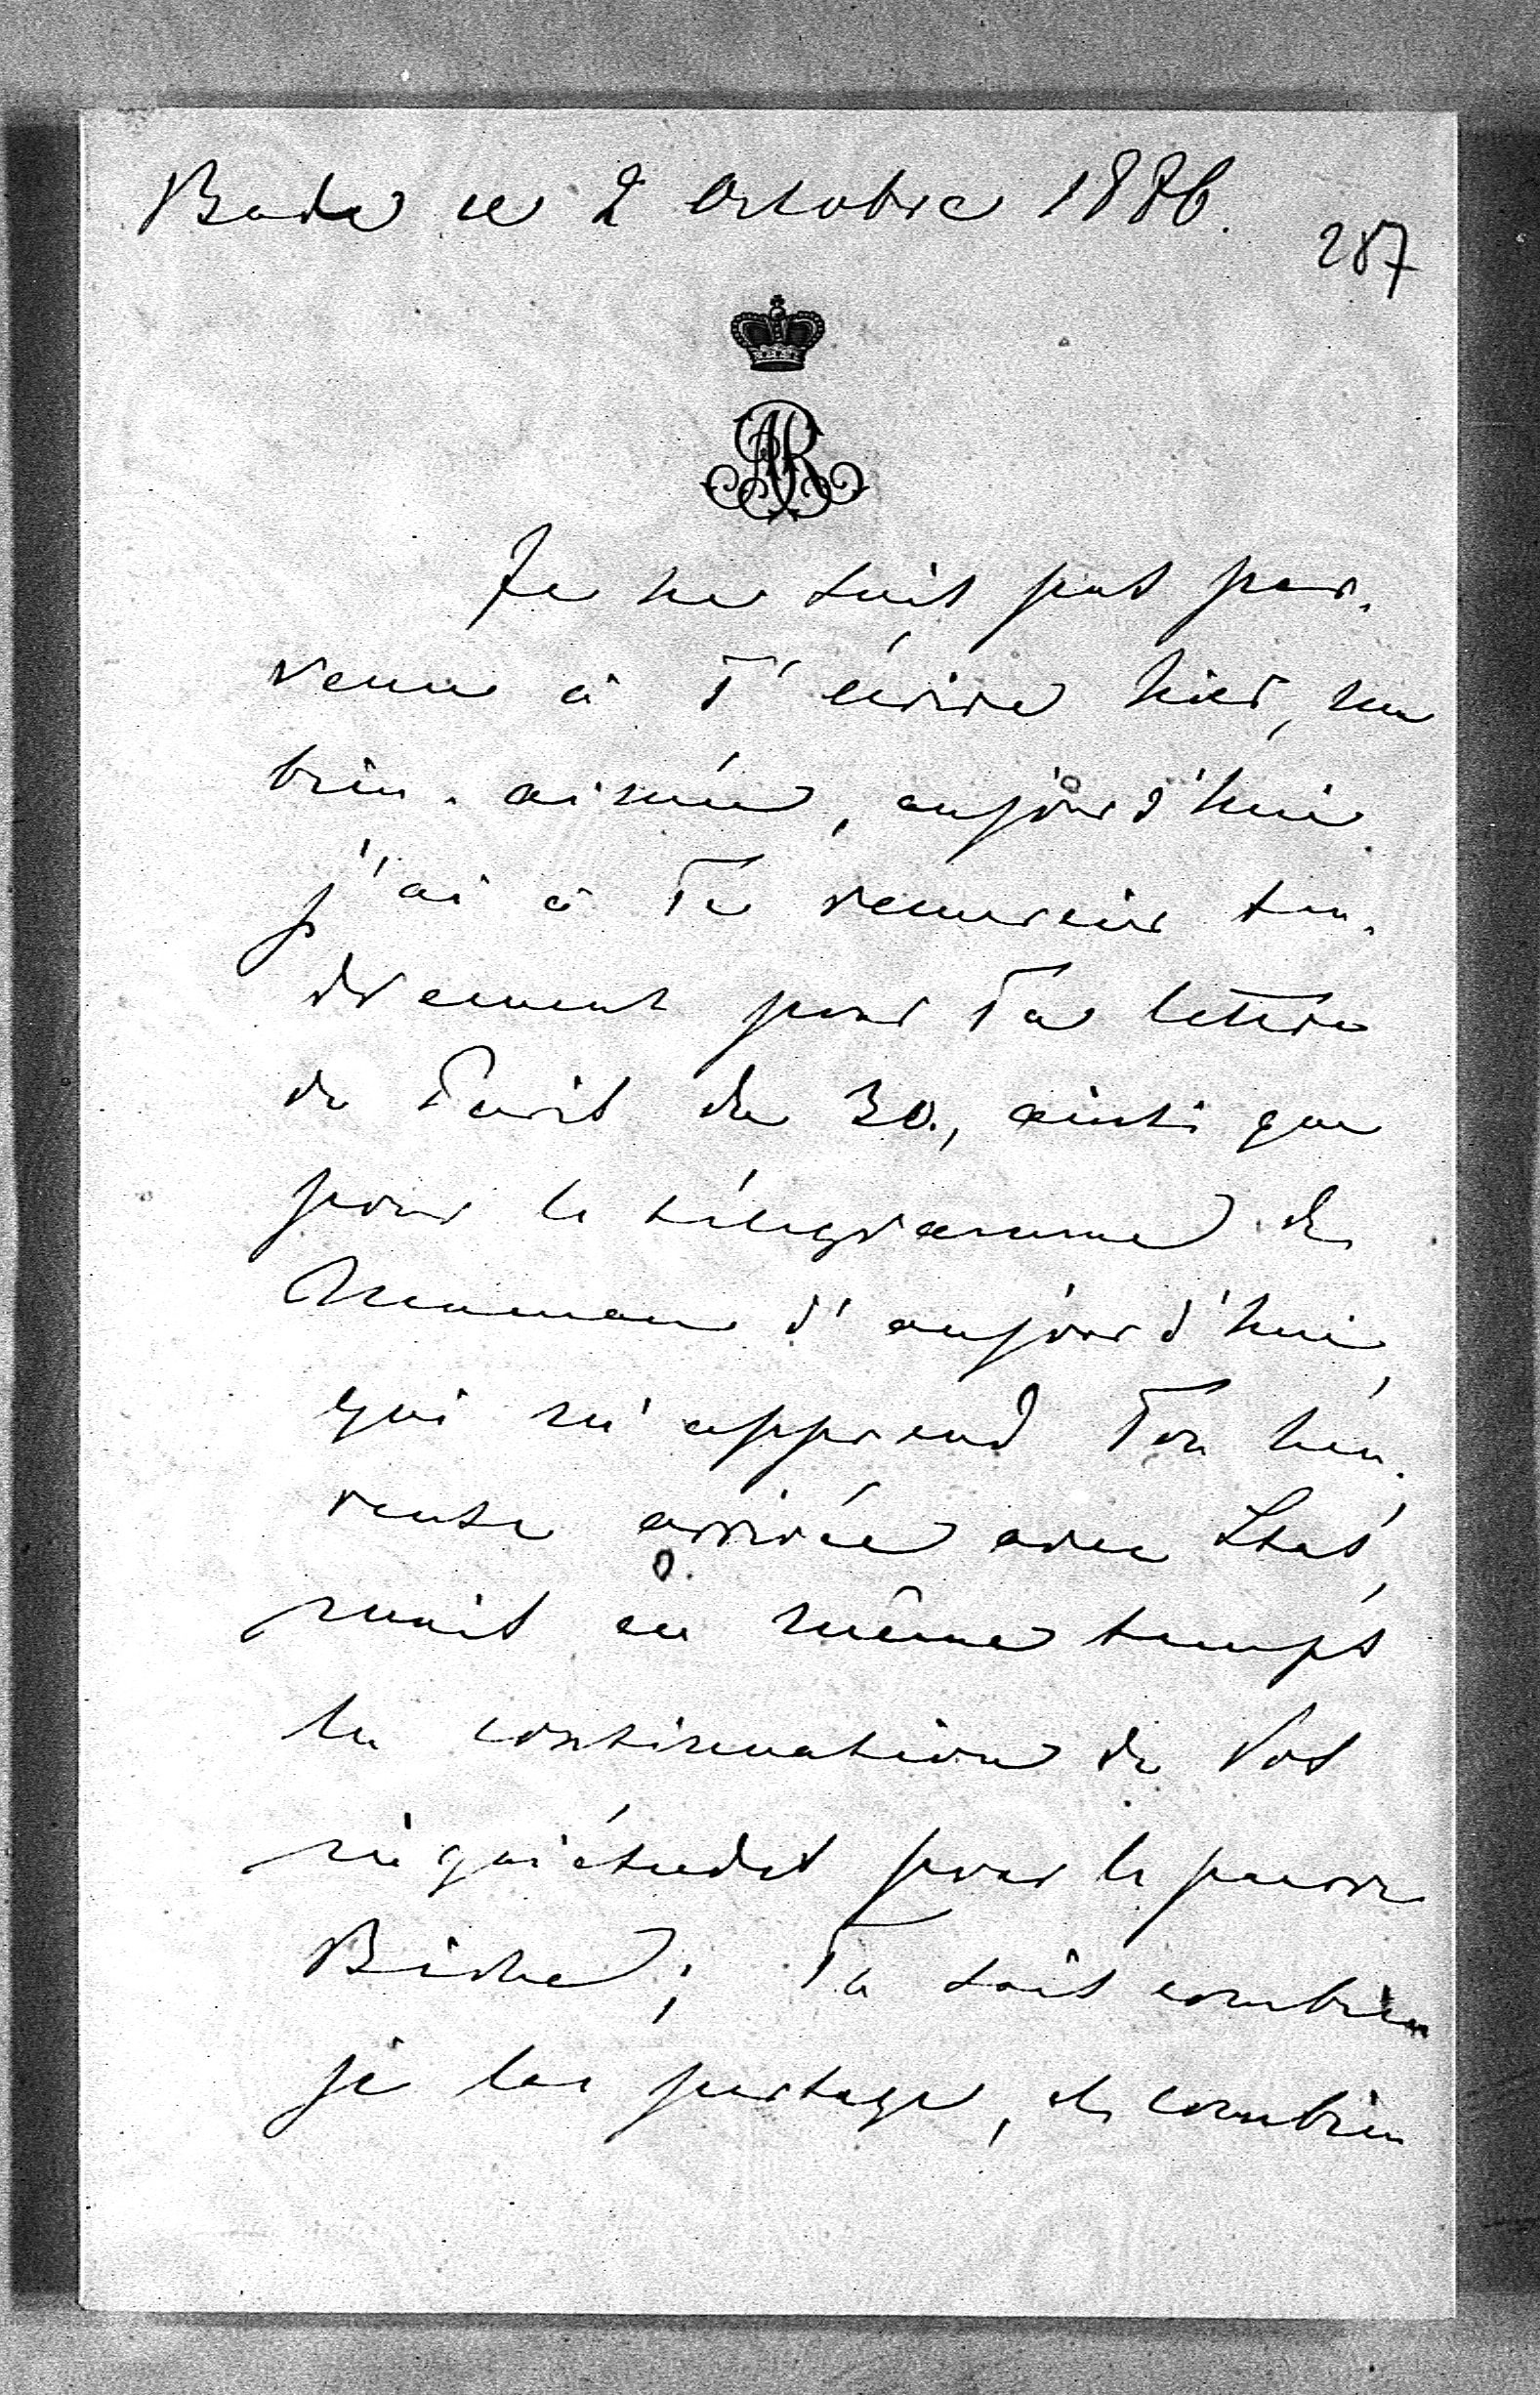 Bade ce 2 Octobre 1886.
287
AR
Je ne suis pas par-
venue à T'écrire hier, ma
bien-aimée, aujourd'hui
j'ai à Te remercier ten-
drement pour Ta lettre
de Paris du 30., ainsi que
pour le télégramme de
Maman d'aujourd'hui,
qui m'apprend Ton heu-
reuse arrivée avec Stas,
mais en même temps
la continuation de Vos
inquiétudes pour le pauvre
Biche; Tu sais combien
je les partage, et combien